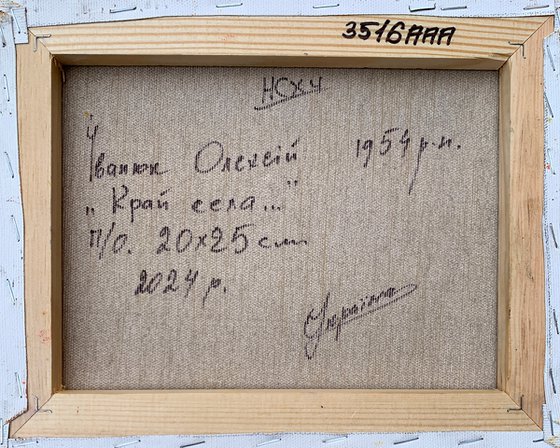 3516AAA
НСХУ
Іванюк Олексій 1954 р.н.
„Край села..."
п/о. 20х25 см.
2024 р.
Україна